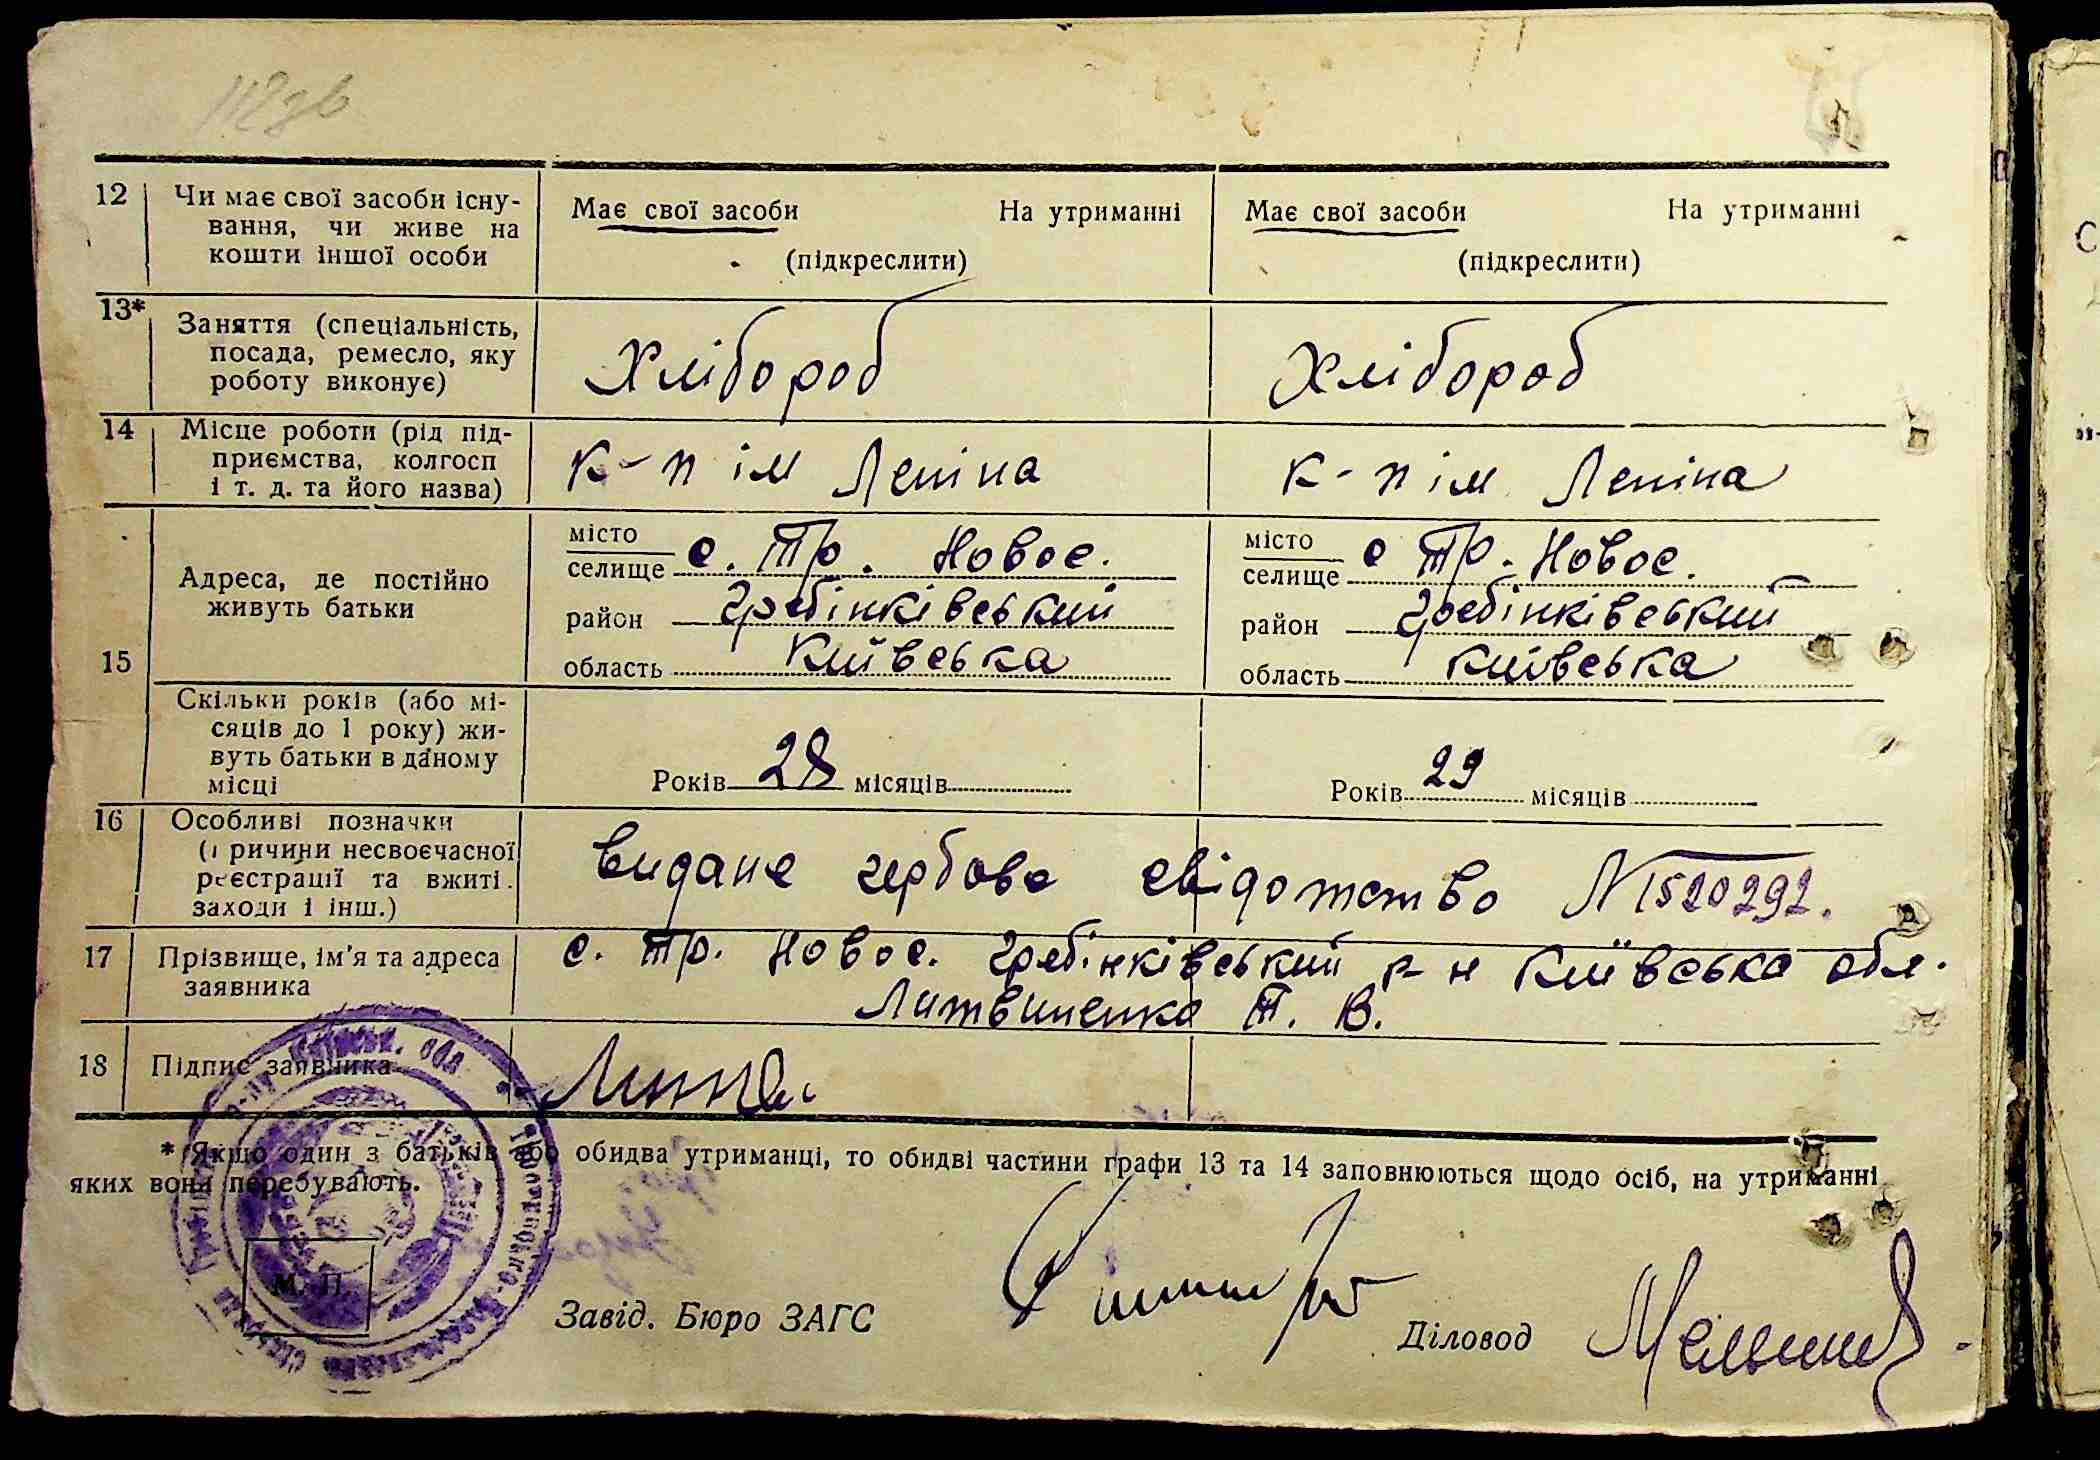 112зв
12 Чи має свої засоби існу-
вання, чи живе на
кошти іншої особи
Має свої засоби На утриманні
(підкреслити)
Має свої засоби На утриманні
(підкреслити)
13* Заняття (спеціальність,
посада, ремесло, яку
роботу виконує)
Хлібороб
Хлібороб
14 Місце роботи (рід під-
приємства, колгосп
і т. д. та його назва)
к-п ім Леніна
к-п ім. Леніна
15 Адреса, де постійно
живуть батьки
місто
селище с. Тр. Новос.
район Гребінківський
область Київська
місто
селище с Тр. Новос.
район Гребінківський
область Київська
Скільки років (або мі-
сяців до 1 року) жи-
вуть батьки в даному
місці
Років 28 місяців
Років 29 місяців
16 Особливі позначки
(причини несвоєчасної
реєстрації та вжиті
заходи і інш.)
видане гербове свідотство N 1520292.
17 Прізвище, ім'я та адреса
заявника
с. Тр. Новос. Гребінківський р-н Київська обл.
Литвиненко Т. В.
18 Підпис заявника
* Якщо один з батьків або обидва утриманці, то обидві частини графи 13 та 14 заповнюються щодо осіб, на утриманні
яких вони перебувають.
М. П.
Завід. Бюро ЗАГС
Діловод